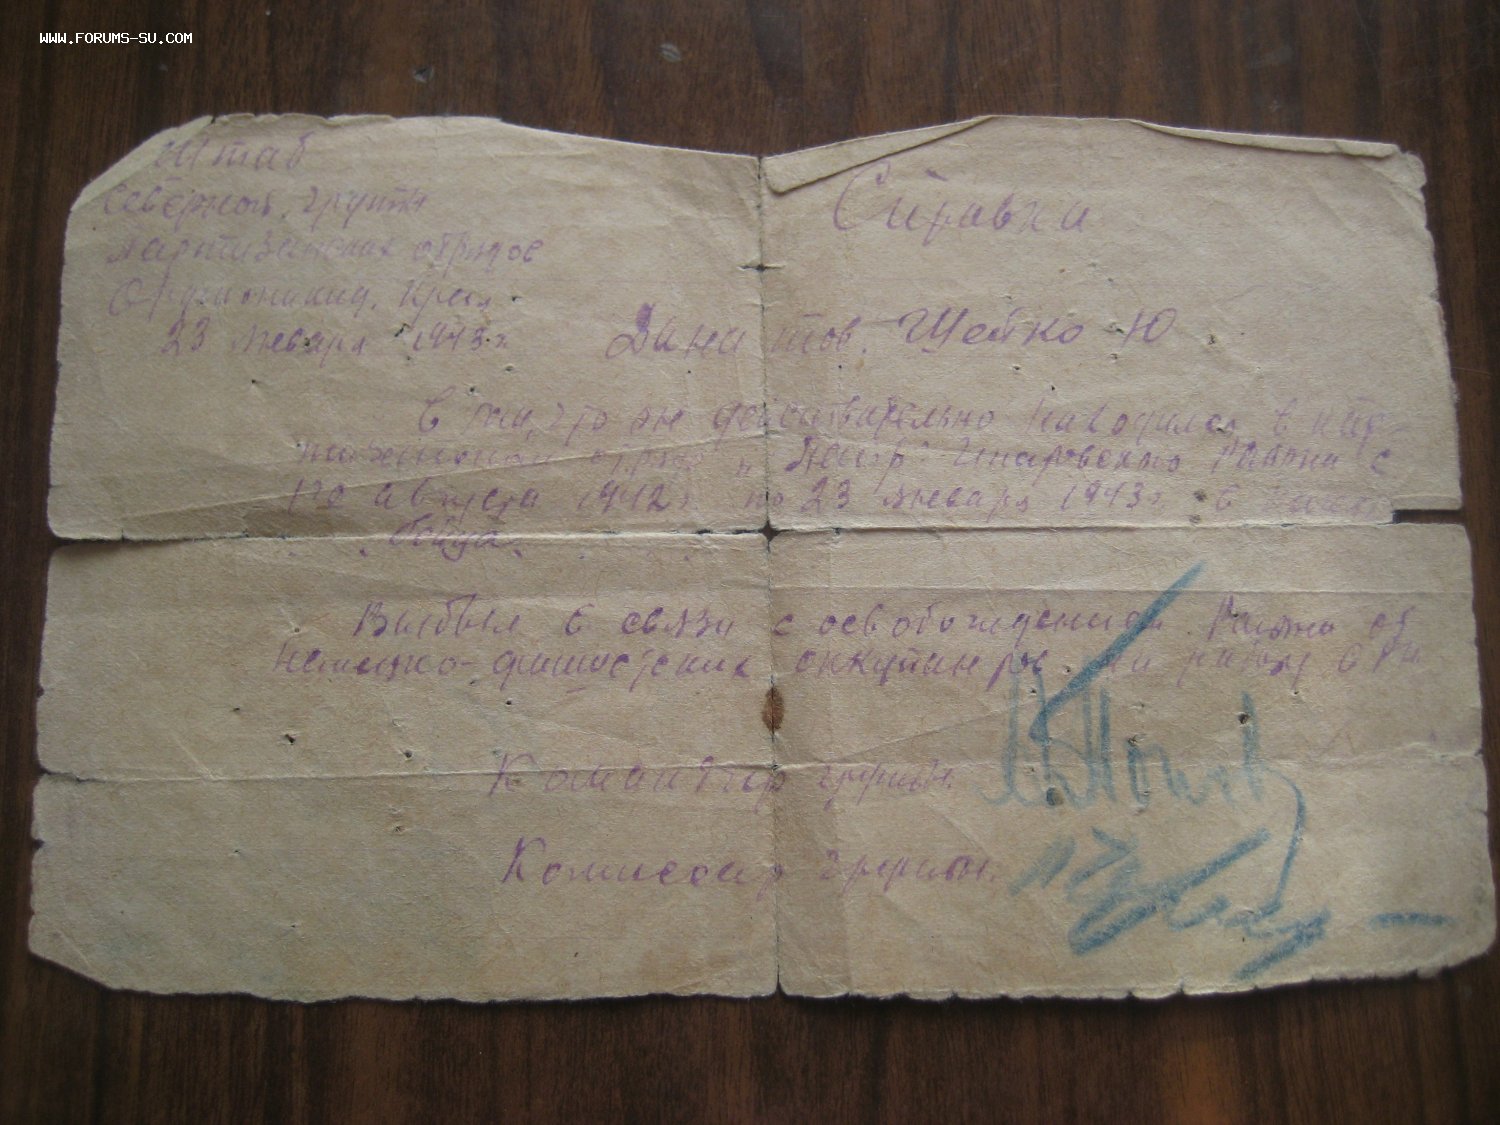 WWW.FORUMS-SU.COM
Штаб
Северной группы
партизанских отрядов
Орджоникид. Края
23 января 1943 г
Справка
Дана тов. Щетко Ю
В том, что он действительно находился в пар-
тизанском отряде района с
августа 1942 г по 23 января 1943 г. в
бойца.
Выбыл в связи с освобождением Района от
Немецко-фашистских оккупантов на работу в
Командир группы.
Комиссар группы.